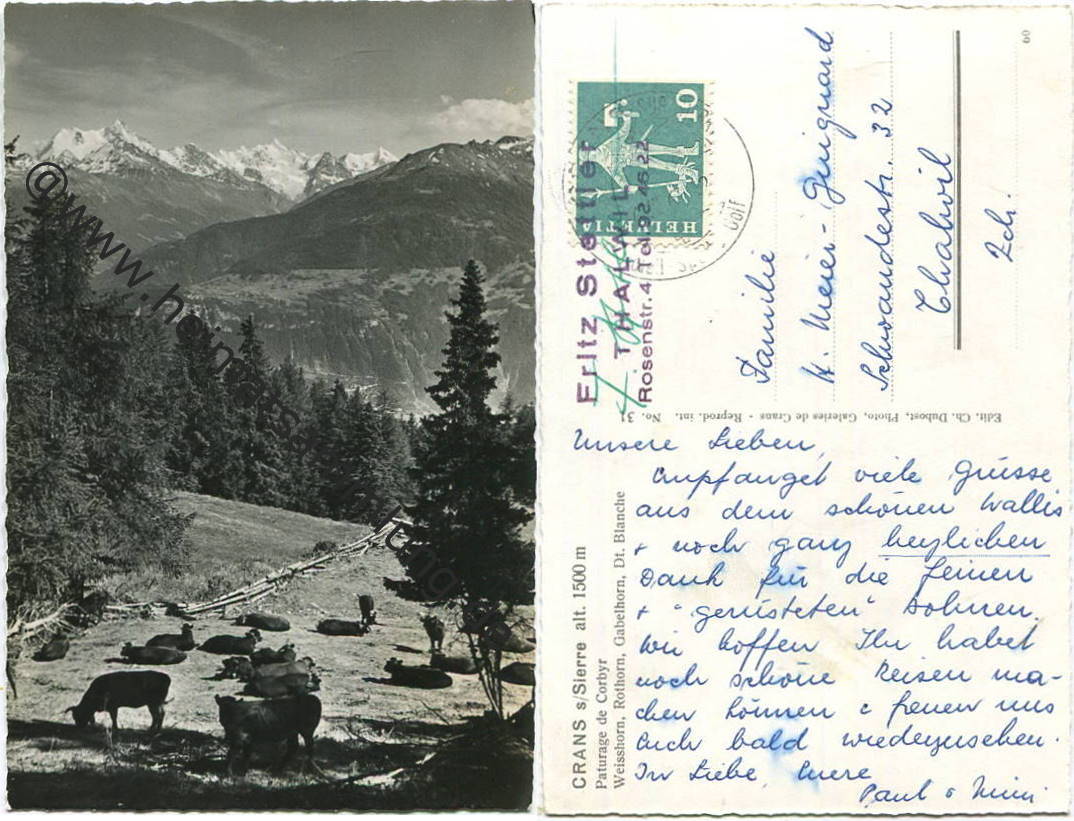 Unsere Lieben,
Empfanget viele Grüsse
aus dem schönen Wallis
+ noch ganz herzlichen
Dank für die feinen
+ "gerüsteten" Bohnen.
Wir hoffen Ihr habet
noch schöne Reisen ma-
chen können & freuen uns
Euch bald wiederzusehen.
In Liebe, Eure
Paul & Mimi
Familie
H. Meier-Guignard
Schwandestr. 32
Thalwil
Zch.
CRANS s/Sierre alt. 1500 m
Paturage de Corbyr
Weisshorn, Rothorn, Gabelhorn, Dt. Blanche
Edit. Ch. Dubost, Photo, Galeries de Crans - Reprod. int. No. 31
60
10
HELVETIA
Fritz Stettler
THALWIL
Rosenstr. 4 Tel. 92 46 22
Golf